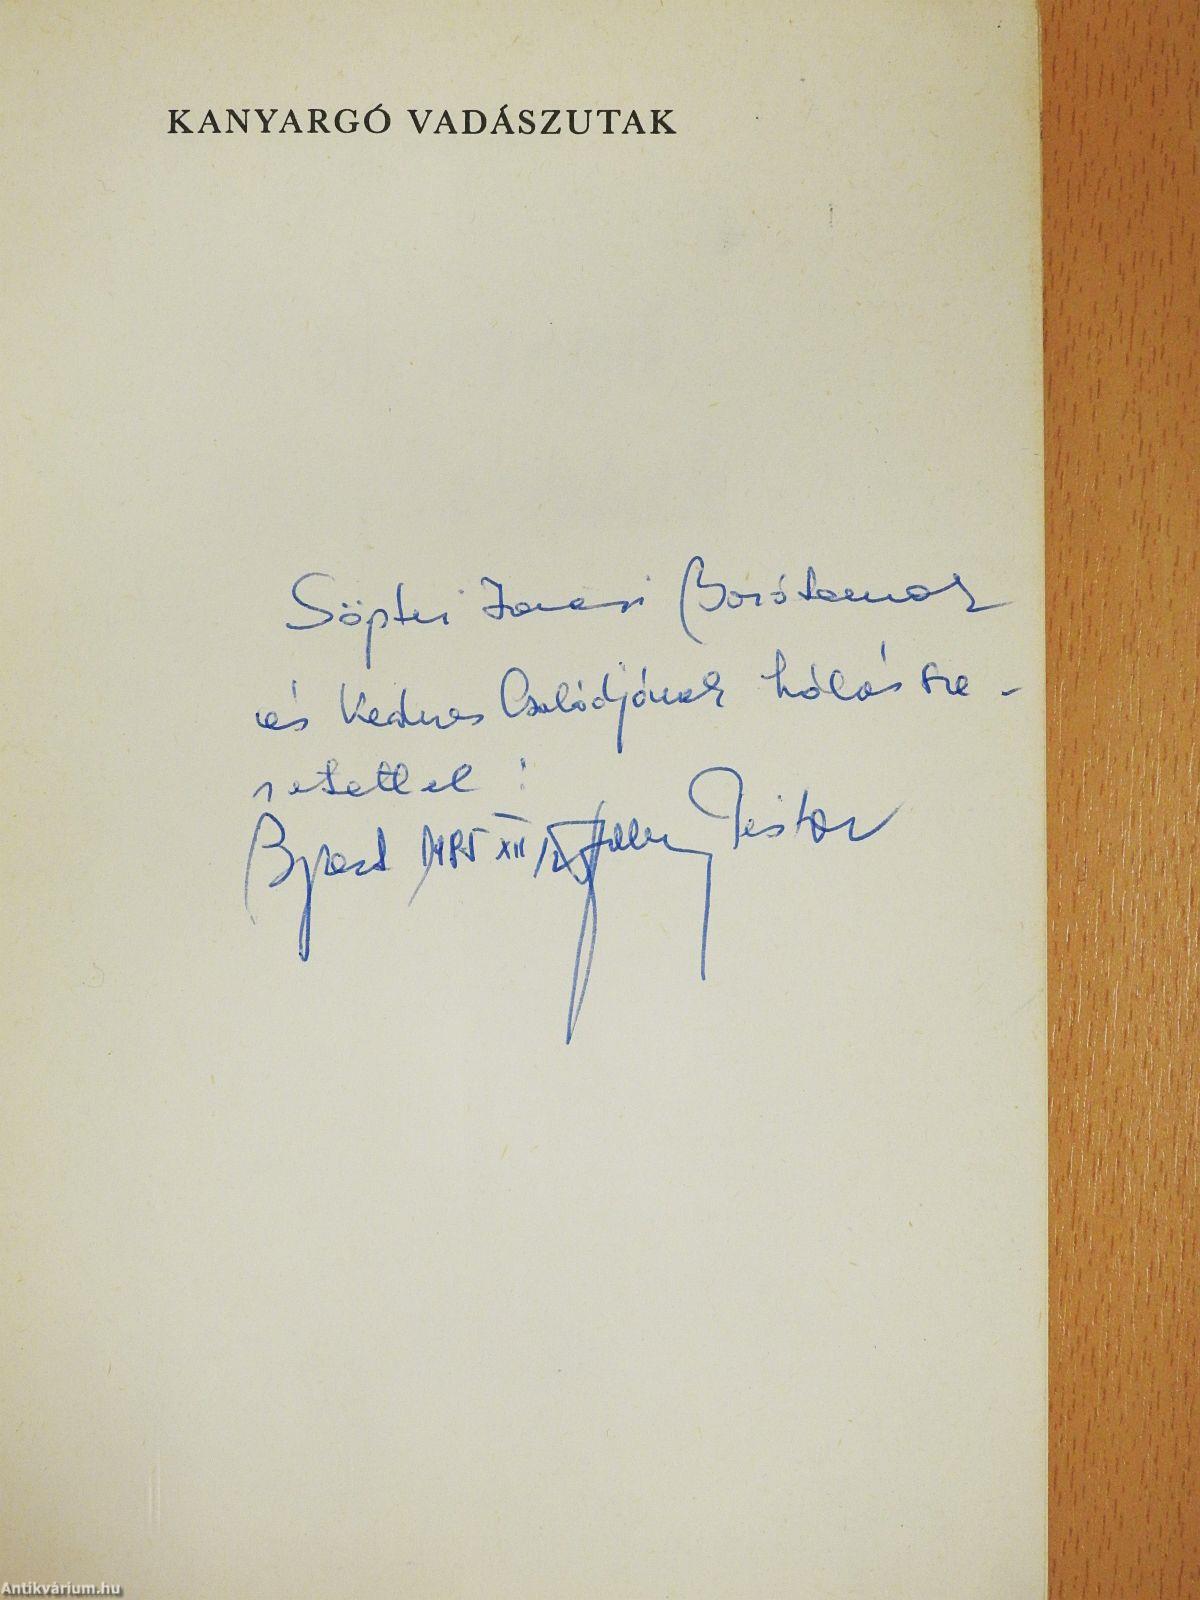 KANYARGÓ VADÁSZUTAK
Söptei Barátomnak
és Kedves Családjának hálás sze-
retettel!
Bpest 1985 XII Nestor
Antikvárium.hu